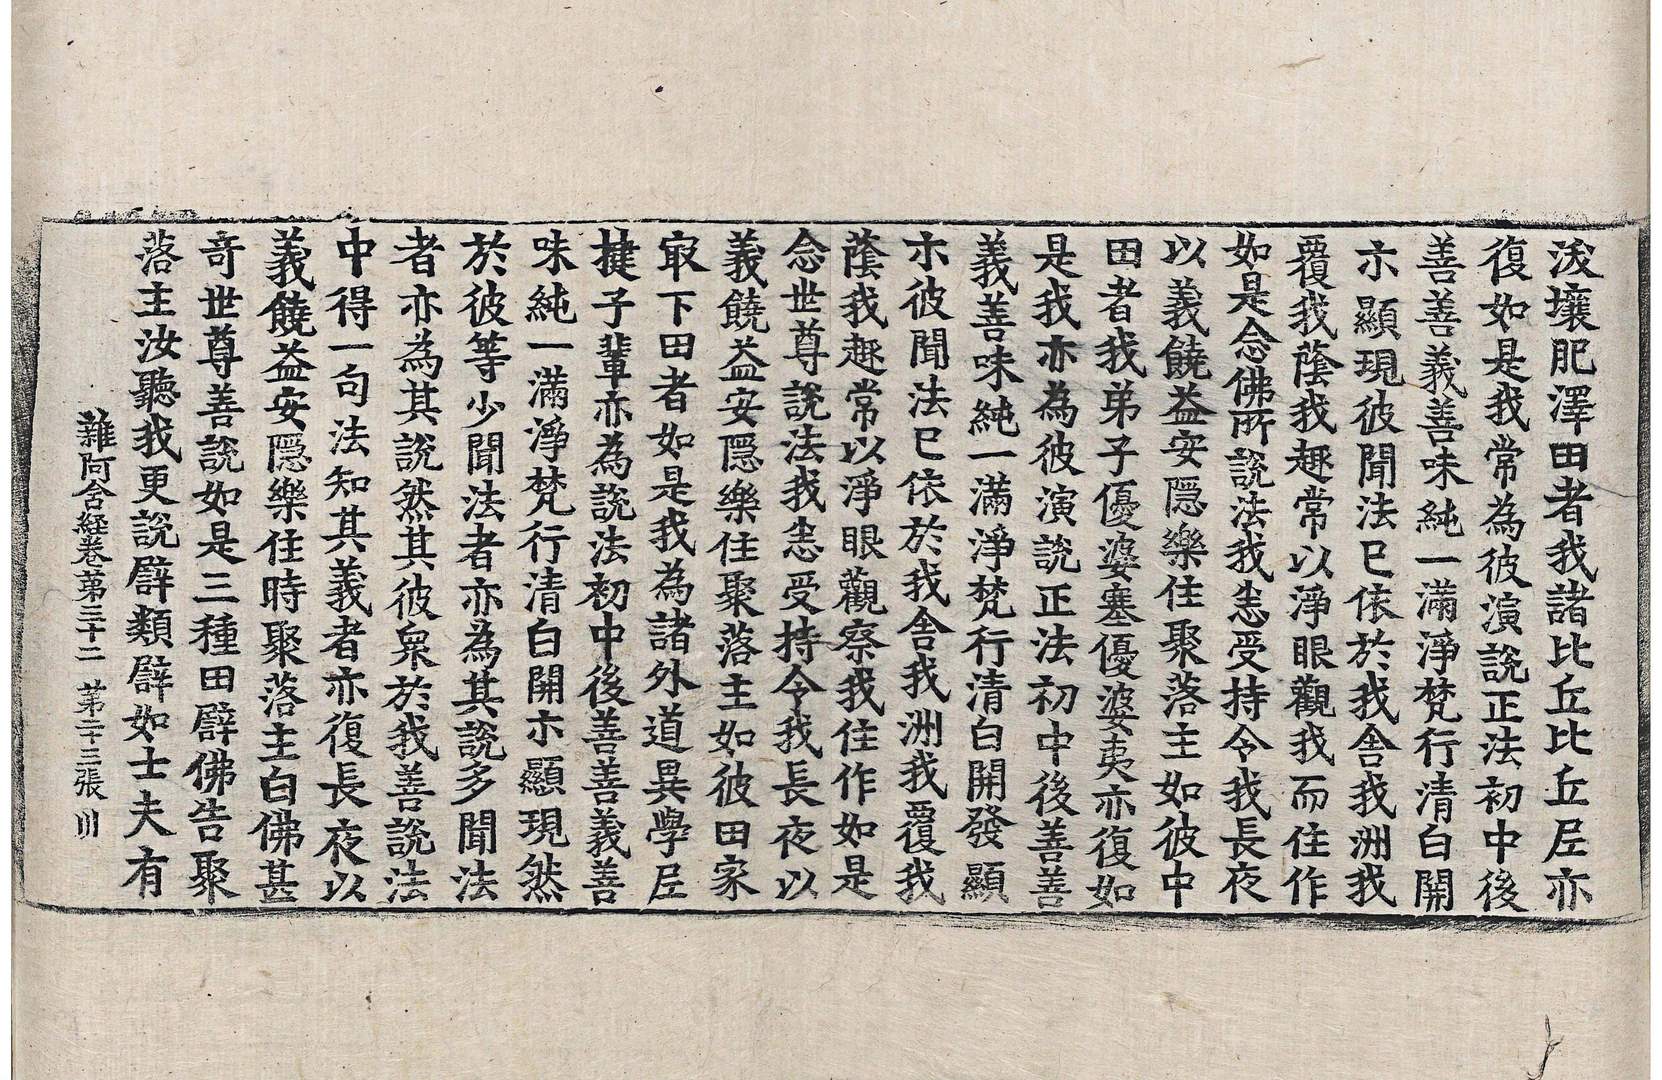 沃壤肥澤田者我諸比丘比丘尼亦
復如是我常為彼演說正法初中後
善善義善味純一滿淨梵行清白開
示顯現彼聞法已依於我舍我洲我
覆我蔭我趣常以淨眼觀我而住作
如是念佛所說法我悉受持令我長夜
以義饒益安隱樂住聚落主如彼中
田者我弟子優婆塞優婆夷亦復如
是我亦為彼演說正法初中後善善
義善味純一滿淨梵行清白開發顯
示彼聞法已依於我舍我洲我覆我
蔭我趣常以淨眼觀察我住作如是
念世尊說法我悉受持令我長夜以
義饒益安隱樂住聚落主如彼田家
冣下田者如是我為諸外道異學尼
揵子輩亦為說法初中後善善義善
味純一滿淨梵行清白開示顯現然
於彼等少聞法者亦為其說多聞法
者亦為其說然其彼眾於我善說法
中得一句法知其義者亦復長夜以
義饒益安隱樂住時聚落主白佛甚
奇世尊善說如是三種田譬佛告聚
落主汝聽我更說譬類譬如士夫有
雜阿含経卷第三十二 第二十三張 川